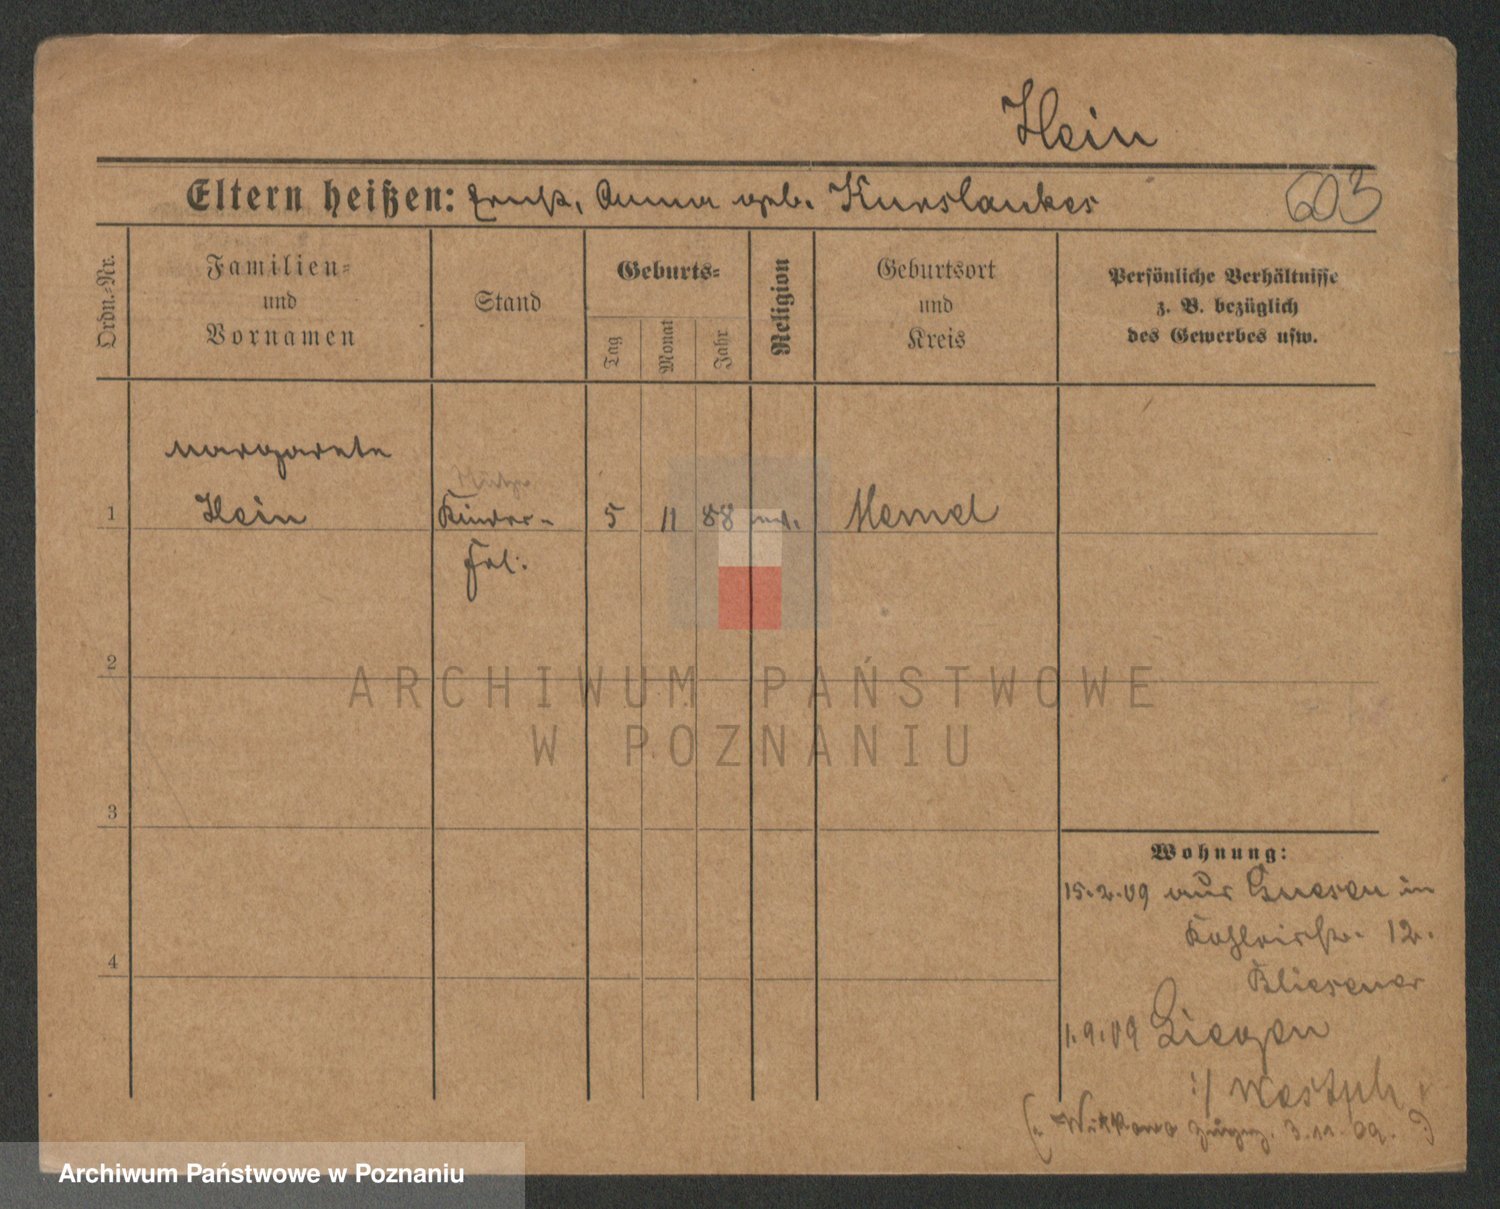 Hein
Eltern heißen: Ernst, Anna geb. Kurslaukes
603
Ordn.-Nr.
Familien-
und
Vornamen
Stand
Geburts-
Tag
Monat
Jahr
Religion
Geburtsort
und
Kreis
Persönliche Verhältnisse
z. B. bezüglich
des Gewerbes usw.
Margarete
1 Hein Kinder- 5 11 88 Memel
Frl:
2
ARCHIWUM PAŃSTWOWE
W POZNANIU
3
Wohnung:
15.2.09 aus Gnesen in
12.
4
Bliesener
1.9.09 Siegen
i/ Westph
3.11.09.
Archiwum Państwowe w Poznaniu